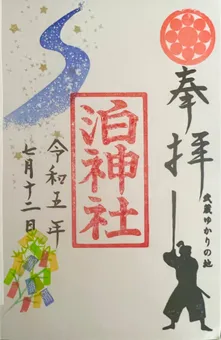 奉拝
武蔵ゆかりの地
泊神社
令和五年
七月十二日